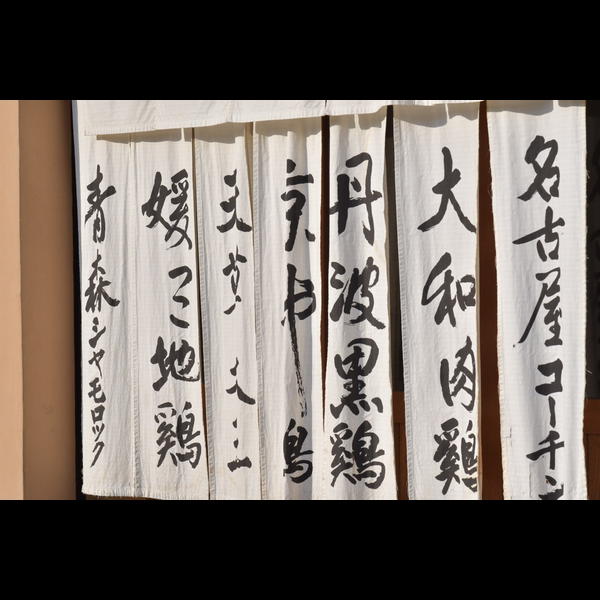 名古屋コーチン
大和肉鶏
丹波黒鶏
京
媛っこ地鶏
青森シャモロック